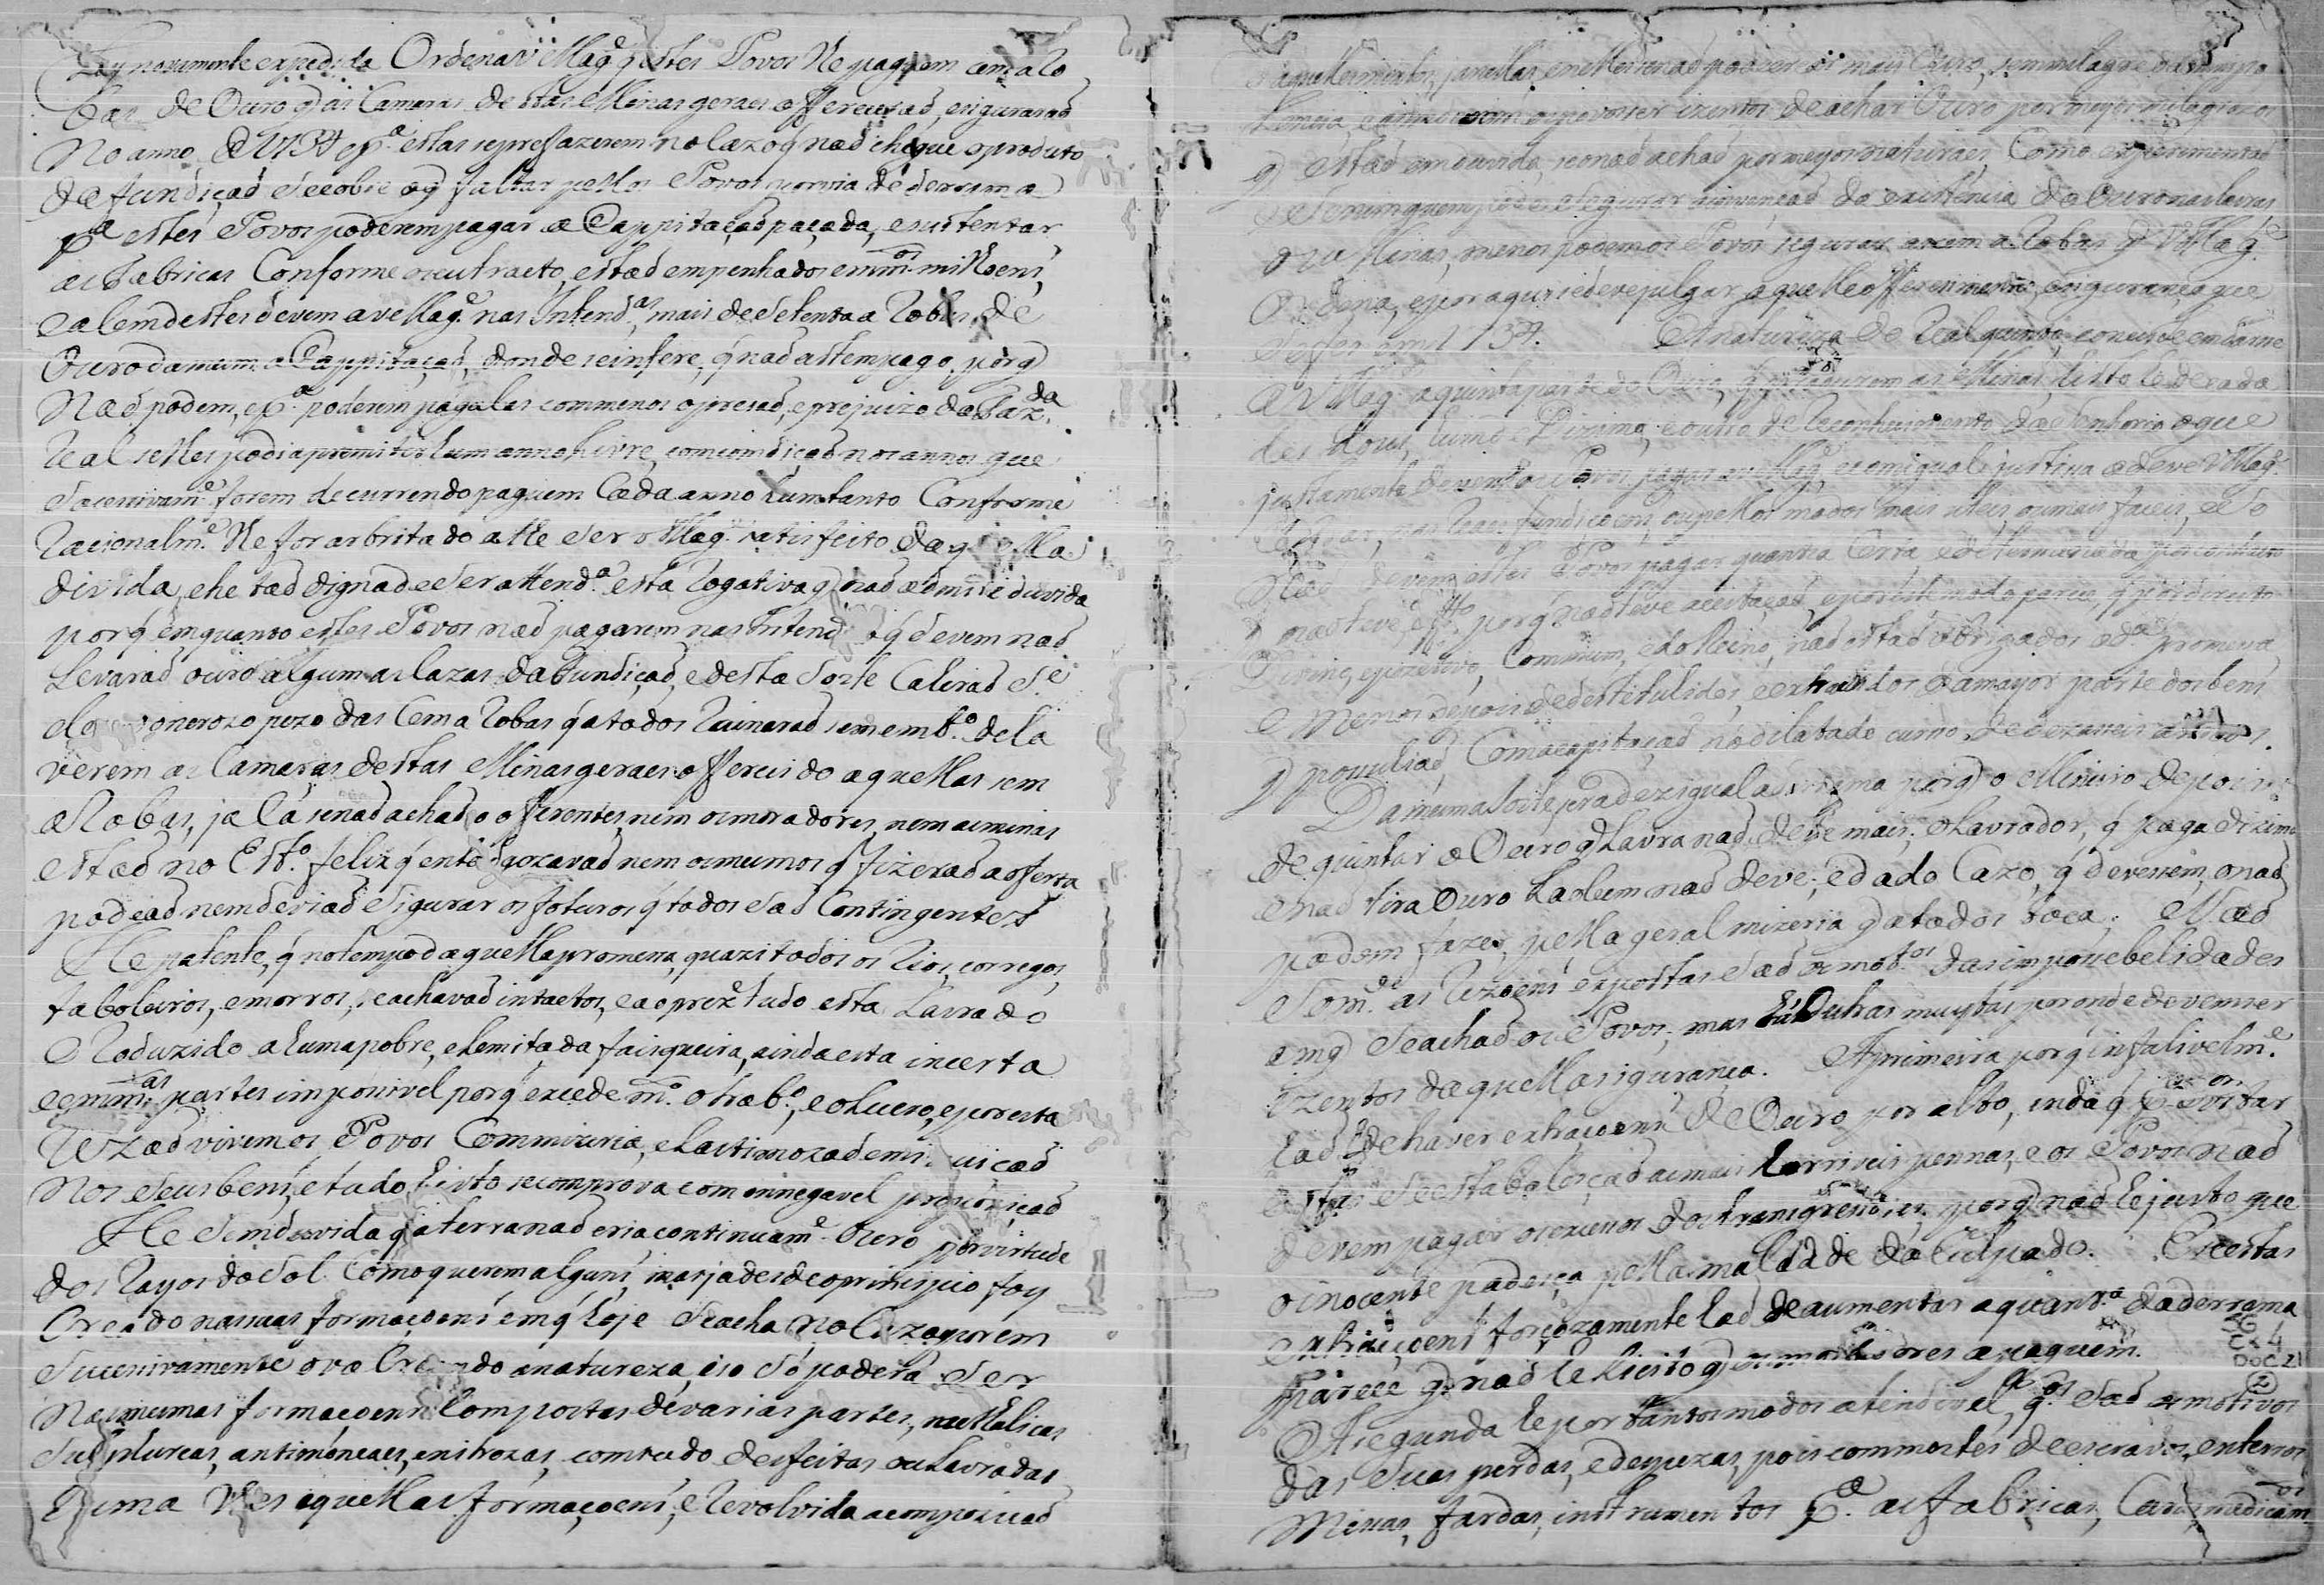 Ley novamente expedida Ordena V Mag.e q estes Povos lhe paguem cem aRo
bas de Ouro q as Camaras destas Minas geraes offerecerad, e siguraraõ
No anno de 1734 e p.a estas se prefazerem no cazo q nad chegue o produto
da fundiçaõ se cobre o q faltar pellos Povos por via de derrama
P.a estes Povos poderem pagar a Cappitaçaõ paçada, e sustentar
as Fabricas Conforme o extracto, estaõ empenhados em m.os milhoens,
e alem destes devem a V Mag.e nas Intend.as mais de Setenta aRobas de
Ouro da mesma Cappitaçaõ, donde se infere, q naõ as tem pago, porq
Naõ podem, e p.a poderem pagalas com menos opresaõ, e prejuizo da Faz.da
Real se lhes podia premitir hum anno livre, com condiçaõ nos annos que
Sucessivam.e forem decurrendo paguem Cada anno hum tanto Conforme
Racionalm.e lhe for arbritado athe Ser V Mag.e satisfeito daq.ella
divida, e he taõ digna de Ser attend.a esta Rogativa q naõ admite duvida
porq emquanto estes Povos naõ pagarem nas Intend.as o q devem naõ
Levaraõ ouro algum as Cazas da Fundiçaõ, e desta Sorte Cahiraõ S.e
elles o oneroso pezo das Cem aRobas q a todos Ruinaraõ sem emb.o de ha
verem as Camaras destas Minas geraes offerecido aquellas sem
aRobas, ja lá se naõ achaõ os offerentes, nem os moradores, nem as minas
estaõ no Est.o feliz q entaõ gozavaõ nem os mesmos q fizeraõ a offerta
podiaõ nem deviaõ Sigurar os foturos q todos Saõ Contingentes
He patente, q no tempo daquella promessa, quazi todos os Rios, corregos,
taboleiros, e morros, se achavaõ intactos, e ao prez.e tudo esta Lavrado
e Reduzido a huma pobre, e Lemitada faisqueira, ainda esta incerta
e em m.as partes impossivel porq excede m.o o trab.o, e o lucro, e por esta
Rezaõ vivem os Povos Com mizeria, e Lastimoza deminuiçaõ
Nos Seus bens, e tudo histo se comprova com innegavel propoziçaõ
He Sem duvida q a terra naõ cria continuam.e Ouro por virtude
dos Rayos do Sol Como querem alguns mas ja desde o principio foy
Creado nas suas formaçoens em q hoje Se acha no Cazo porem
Sucessivamente o va Creando a natureza, iso Só poderá Ser
Nas mesmas formaçoens Compostas de varias partes, metalicas
Sulphureas, antimoneaes, e nitrozas, com tudo desfeitas ou Lavradas
huma Ves aquellas formaçoens, e Revolvida a compoziçaõ
daquelles mistos, ja nellas, e nelles se naõ pode ver mais Ouro, sem milagre
q estaõ em duvida, se o naõ achaõ por meyos naturaes, Como experimentaõ
e Se ninguem pode Segurar a invençaõ da existencia do Ouro nas lavras
das Minas, menos podem os Povos segurar as cem aRobas q V Mag.e
Ordena, e por aqui se deve julgar aquelle offerecimento, e sigurança que
Se fes em 1734. A natureza do Real quinto, consiste em darse
a V Mag.e a quinta parte do Ouro, q produzem as Minas, histo he de rada
des dous, hum o Dizimo, e outro de Reconhecimento do Senhorio o que
justamente devem os Povos pagar a V Mag.e, e com igual justissa a deve V Mag.e
Cobrar, nas Reaes fundiçoens, ou pellos modos mais uteis, ou mais faceis, e So
Naõ devem estes Povos pagar quantia Certa, e determinada por contrato
q naõ teve eff.to porq naõ teve aceitaçaõ, e por este modo parece, q por direito
Divino, e pozitivo, Commum, e do Reino, naõ estaõ obrigados a d.a promessa
e menos depois de destituhidos, e extrahidos da mayor parte dos bens
q possuhiaõ Com a capitaçaõ no dilatado curso de dezasseis annos.
Da mesma Sorte sera dezigual a derrama porq o Mineiro depois
de quintar o Ouro q Lavra naõ deve mais; o Lavrador, q paga dizimo
e naõ tira Ouro tambem naõ deve; e dado Cazo, q devessem, o naõ
podem fazer, pella geral mizeria q a todos toca. Naõ
Som.de as Rezoens expostas Saõ os mot.os das impossebelidades
em q Se achaõ os Povos, mas há Outras muytas por onde devem ser
izentos daquella sigurança. A primeira porq infalivelm.e
haõ de haver extraçoens de Ouro por alto, inda q p.a evitar
estas Se estabaleçaõ as mais horriveis pennas, e os Povos naõ
devem pagar os excessos dos transgressores, porq naõ he justo que
o inocente padeça pella maldade do Culpado. E sestas
extraçoens forçozamente haõ de aumentar a quant.a da derrama
parece q naõ he licito q os moradores a paguem.
A Segunda he por tantos modos atendivel, q.os Saõ os motivos
das Suas perdas, e despezas, pois com mortes de escravos, enterros
Missas, fardas, instrumentos p.a as fabricas, Caros medicam.os
C 4
DOC 2
2